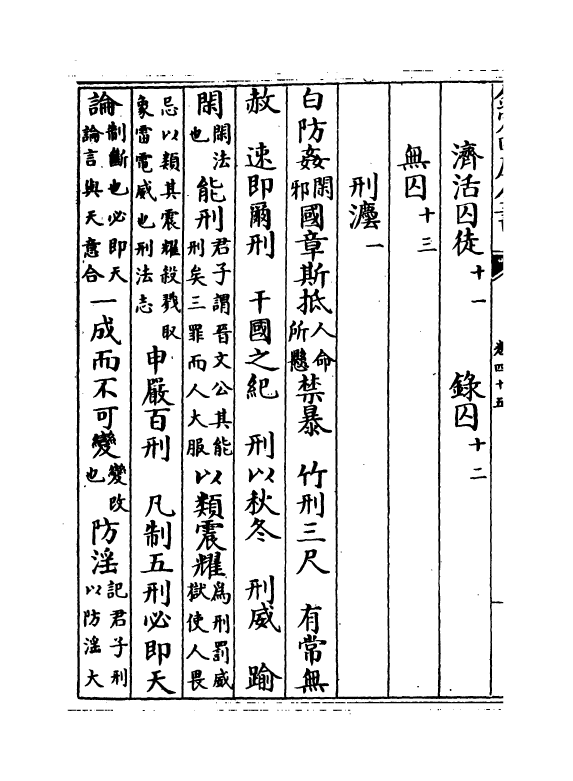 卷四十五
濟活囚徒十一 錄囚十二
無囚十三
刑灋一
白防姦閑邪國章斯抵人命所懸禁暴 竹刑三尺 有常無
赦 速即爾刑 干國之紀 刑以秋冬 刑威 踰
閑閑法也能刑君子謂晉文公其能刑矣三罪而人大服以類震耀為刑罰威獄使人畏
忌以類其震耀殺戮取象雷電威也刑法志 申嚴百刑 凡制五刑必即天
論制斷也必即天論言與天意合一成而不可變變改也防淫記君子刑以防淫大